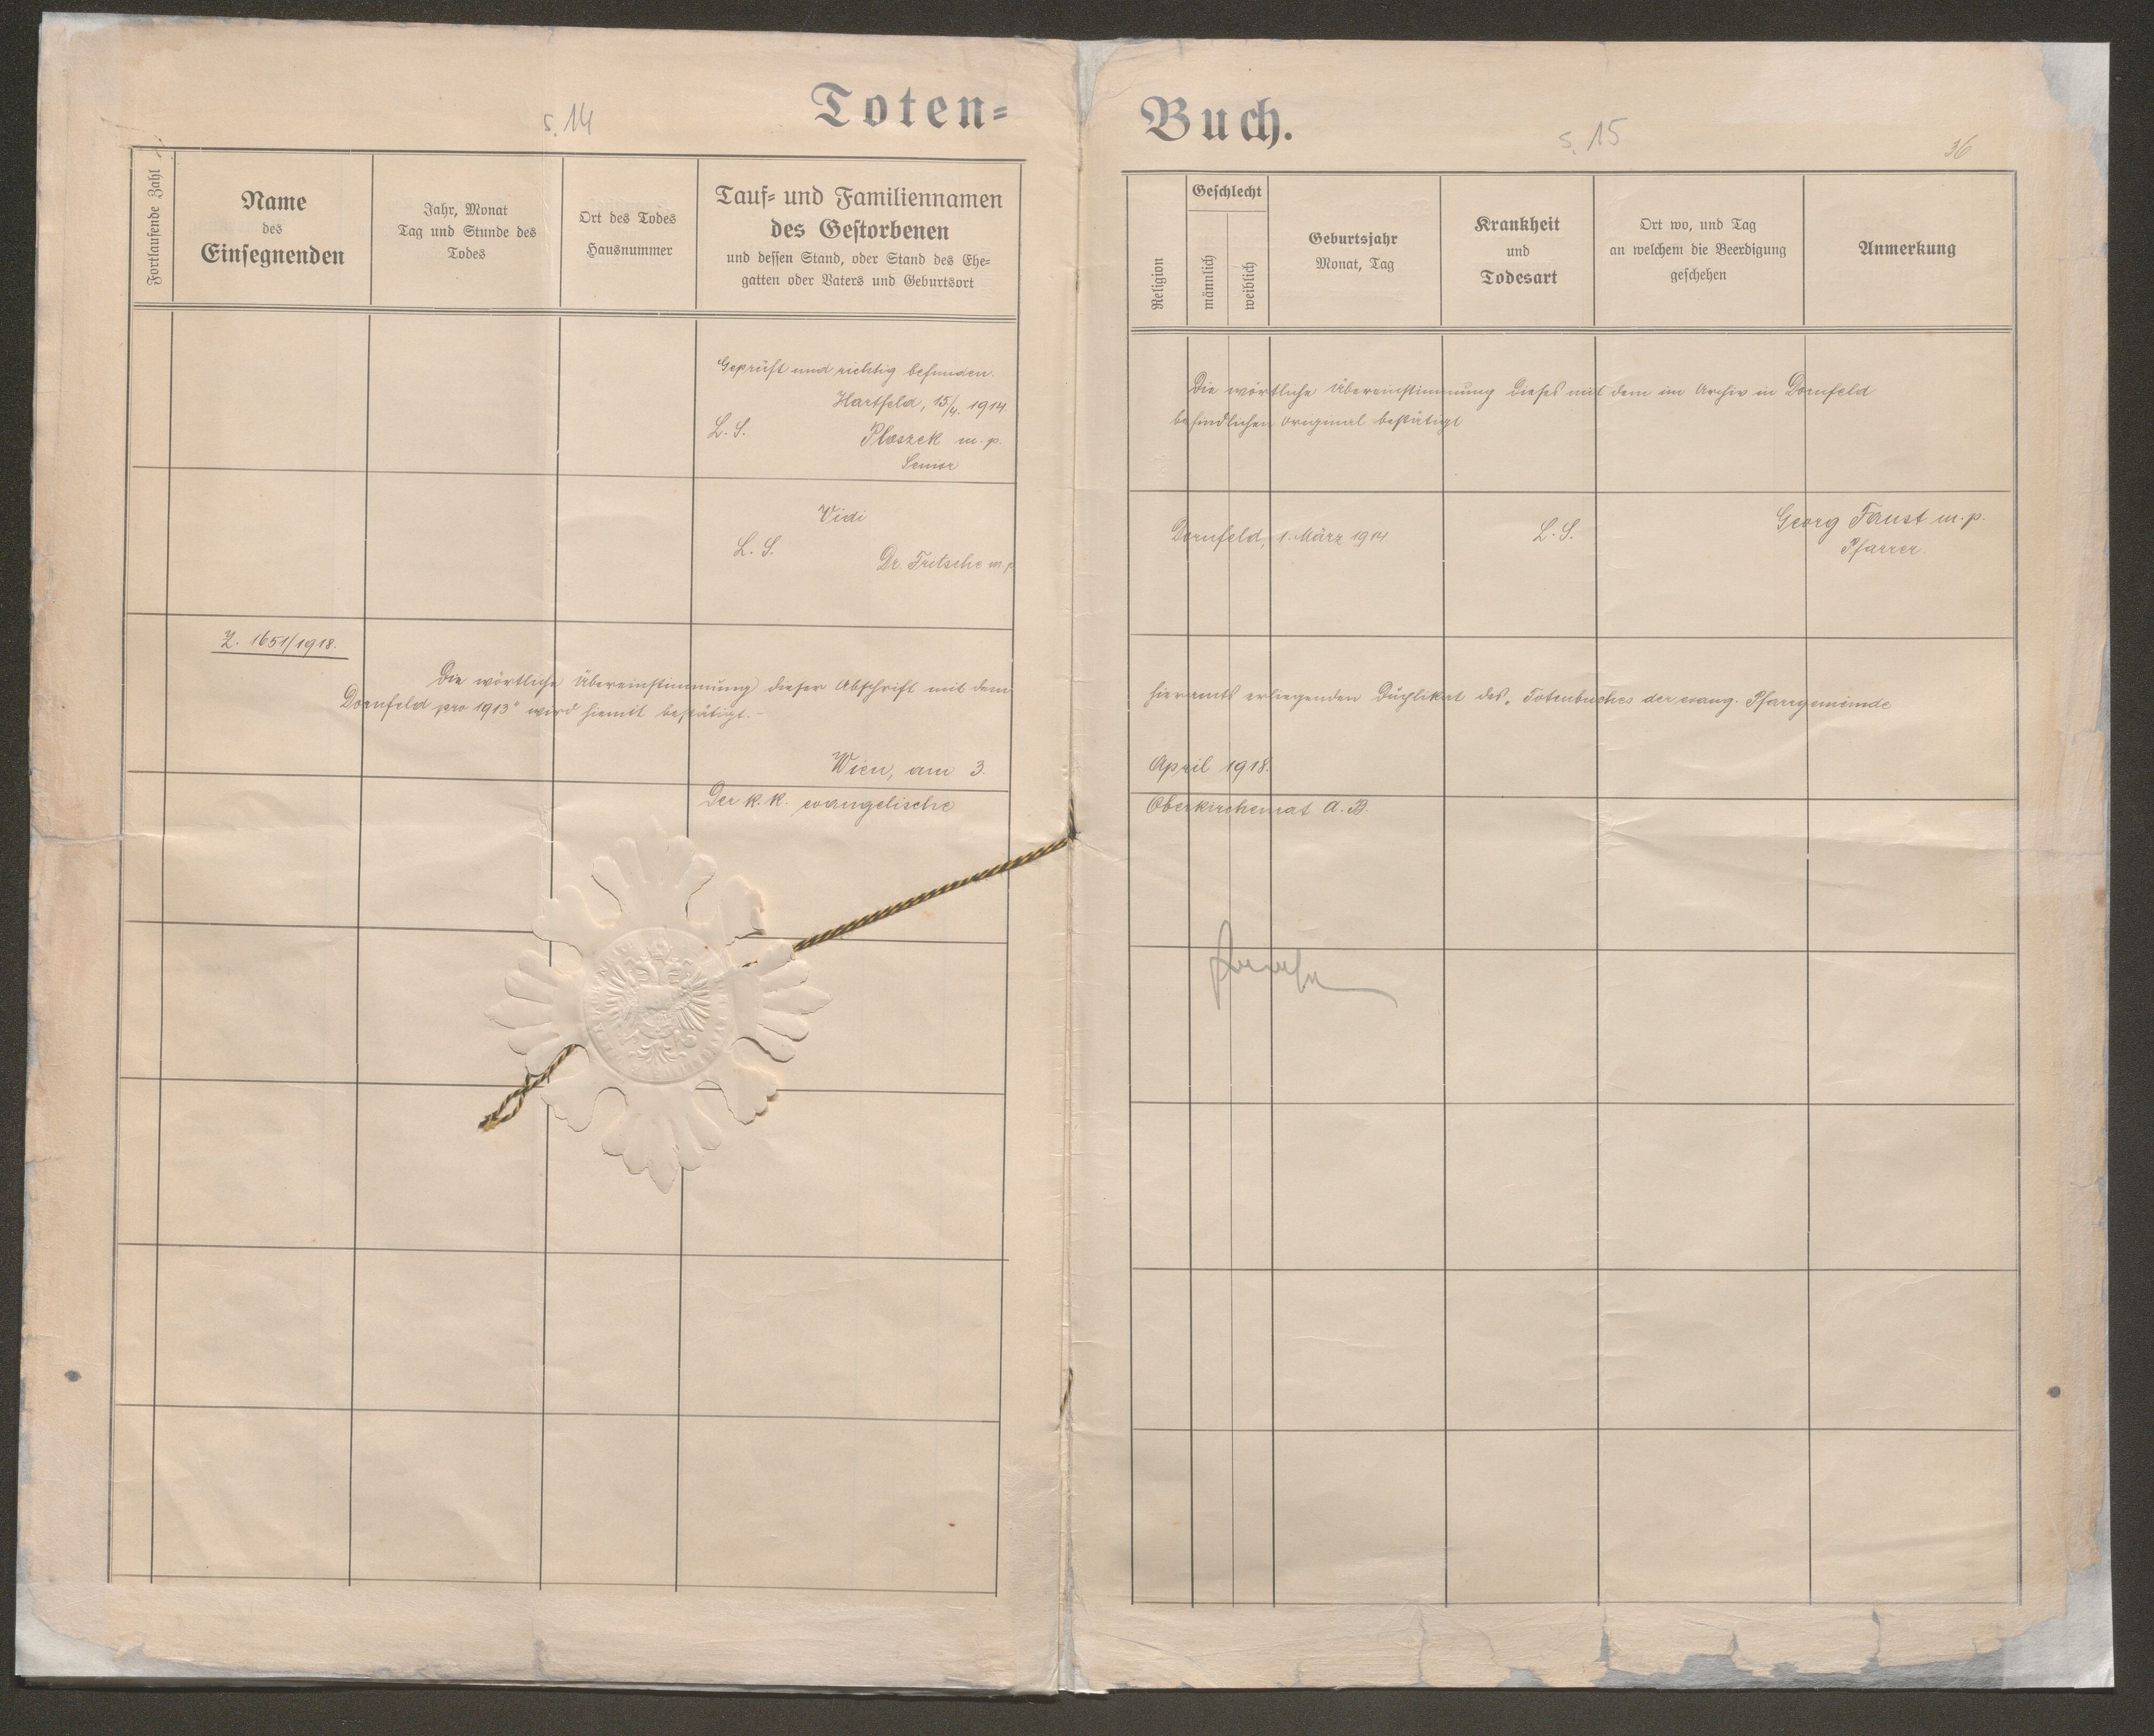 Toten=
s. 14
Fortlaufende Zahl
Name
des
Einsegnenden
Jahr, Monat
Tag und Stunde des
Todes
Ort des Todes
Hausnummer
Tauf= und Familiennamen
des Gestorbenen
und dessen Stand, oder Stand des Ehe=
gatten oder Vaters und Geburtsort
Geprüft und richtig befunden.
Hartfeld, 15/4. 1914.
L. S.
Ploszek m. p.
Senior
Vidi
L. S.
Dr. Fritsche m. p
Z. 1651/1918.
Die wörtliche Übereinstimmung dieser Abschrift mit dem
Dornfeld pro 1913" wird hiemit bestätigt.-
Wien, am 3.
Der k. k. evangelische
Buch.
s. 15
36
Religion
Geschlecht
männlich
weiblich
Geburtsjahr
Monat, Tag
Krankheit
und
Todesart
Ort wo, und Tag
an welchem die Beerdigung
geschehen
Anmerkung
Die wörtliche Übereinstimmung dieses mit dem im Archiv in Dornfeld
befindlichen Original bestätigt
Dornfeld, 1. März 1914
L. S.
Georg Faust m. p.
Pfarrer
hieramts erliegenden Duplikat des „Totenbuches der evang. Pfarrgemeinde
April 1918.
Oberkirchenrat A. B.